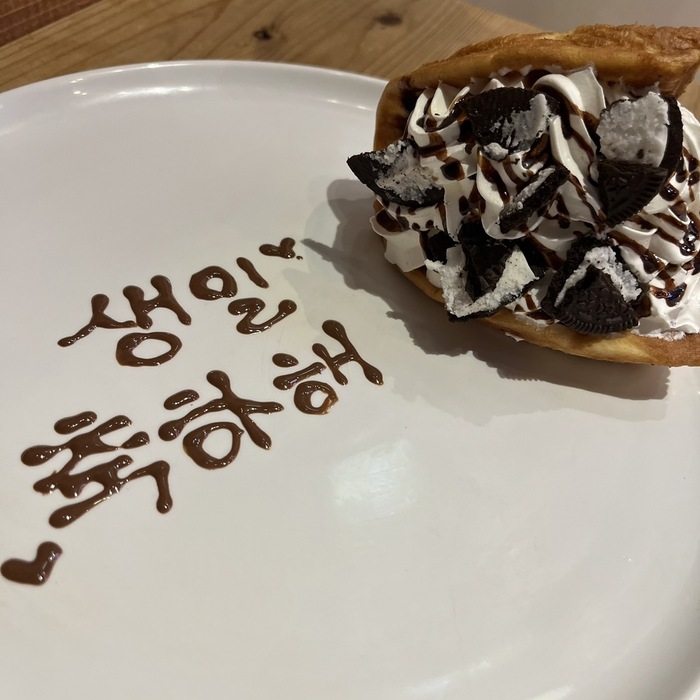 생일
축하해